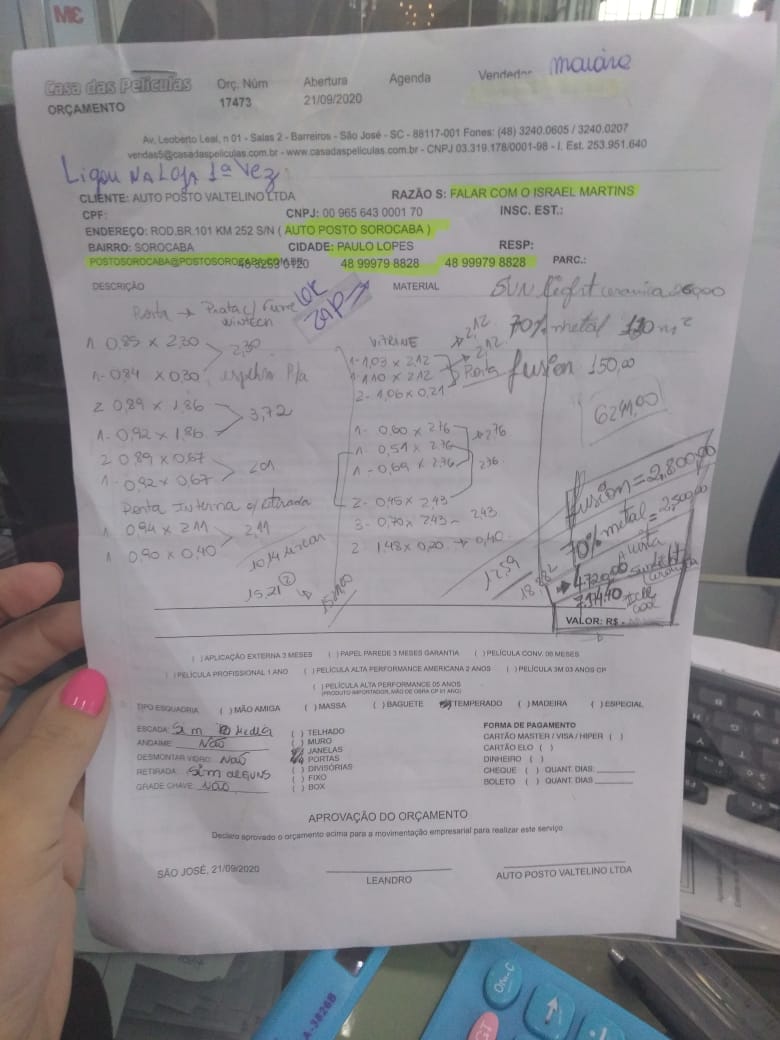 ME
Casa das Películas
ORÇAMENTO
Orç. Núm
17473
Abertura
21/09/2020
Agenda
Vendedor
Av. Leoberto Leal, n 01 - Salas 2 - Barreiros - São José - SC - 88117-001 Fones: (48) 3240.0605 / 3240.0207
vendas5@casadaspeliculas.com.br - www.casadaspeliculas.com.br - CNPJ 03.319.178/0001-98 - I. Est. 253.951.640
Ligou NA LOJA 1ª VEZ
CLIENTE: AUTO POSTO VALTELINO LTDA
RAZÃO S: FALAR COM O ISRAEL MARTINS
CPF:
CNPJ: 00 965 643 0001 70
INSC. EST.:
ENDEREÇO: ROD.BR.101 KM 252 S/N ( AUTO POSTO SOROCABA )
BAIRRO: SOROCABA
CIDADE: PAULO LOPES
RESP:
48 99979 8828
48 99979 8828
PARC.:
DESCRIÇÃO
MATERIAL
SUN light ceramica
Porta → Prata c/
1. 0,85 x 2,30
2,30
1. 0,84 x 0,30
espelho P/a
2 0,89 x 1,86
3,72
1. 0,92 x 1,86
2 0,89 x 0,67
2,01
1. 0,92 x 0,67
Porta Interna c/
1 0,94 x 2,11
2,11
1 0,90 x 0,40
10,14
15,21
VITRINE
1- 1,03 x 2,12
2,12
1- 1,10 x 2,12
2,12
Porta
2- 1,06 x 0,21
1- 0,60 x 2,76
2,76
1- 0,54 x 2,76
1- 0,69 x 2,36
2,36
2- 0,45 x 2,43
3- 0,70 x 2,43
2,43
2 1,48 x 0,20 → 0,40
12,59
18,882
70% metal 130 m²
fusion 150,00
6291,00
fusion = 2.800,00
70% metal = 2,500,00
4.720,00
VALOR: R$
( ) APLICAÇÃO EXTERNA 3 MESES ( ) PAPEL PAREDE 3 MESES GARANTIA ( ) PELÍCULA CONV. 06 MESES
( ) PELÍCULA PROFISSIONAL 1 ANO ( ) PELÍCULA ALTA PERFORMANCE AMERICANA 2 ANOS ( ) PELÍCULA 3M 03 ANOS CP
( ) PELÍCULA ALTA PERFORMANCE 05 ANOS
TIPO ESQUADRIA ( ) MÃO AMIGA ( ) MASSA ( ) BAGUETE TEMPERADO ( ) MADEIRA ( ) ESPECIAL
ESCADA: Sim
ANDAIME: Não
DESMONTAR VIDRO: Não
RETIRADA: Sim alguns
GRADE CHAVE: Não
( ) TELHADO
( ) MURO
JANELAS
PORTAS
( ) DIVISÓRIAS
( ) FIXO
( ) BOX
FORMA DE PAGAMENTO
CARTÃO MASTER / VISA / HIPER ( )
CARTÃO ELO ( )
DINHEIRO ( )
CHEQUE ( ) QUANT. DIAS:
BOLETO ( ) QUANT. DIAS
APROVAÇÃO DO ORÇAMENTO
Declaro aprovado o orçamento acima para a movimentação empresarial para realizar este serviço
SÃO JOSÉ, 21/09/2020
LEANDRO
AUTO POSTO VALTELINO LTDA
On-C
GT